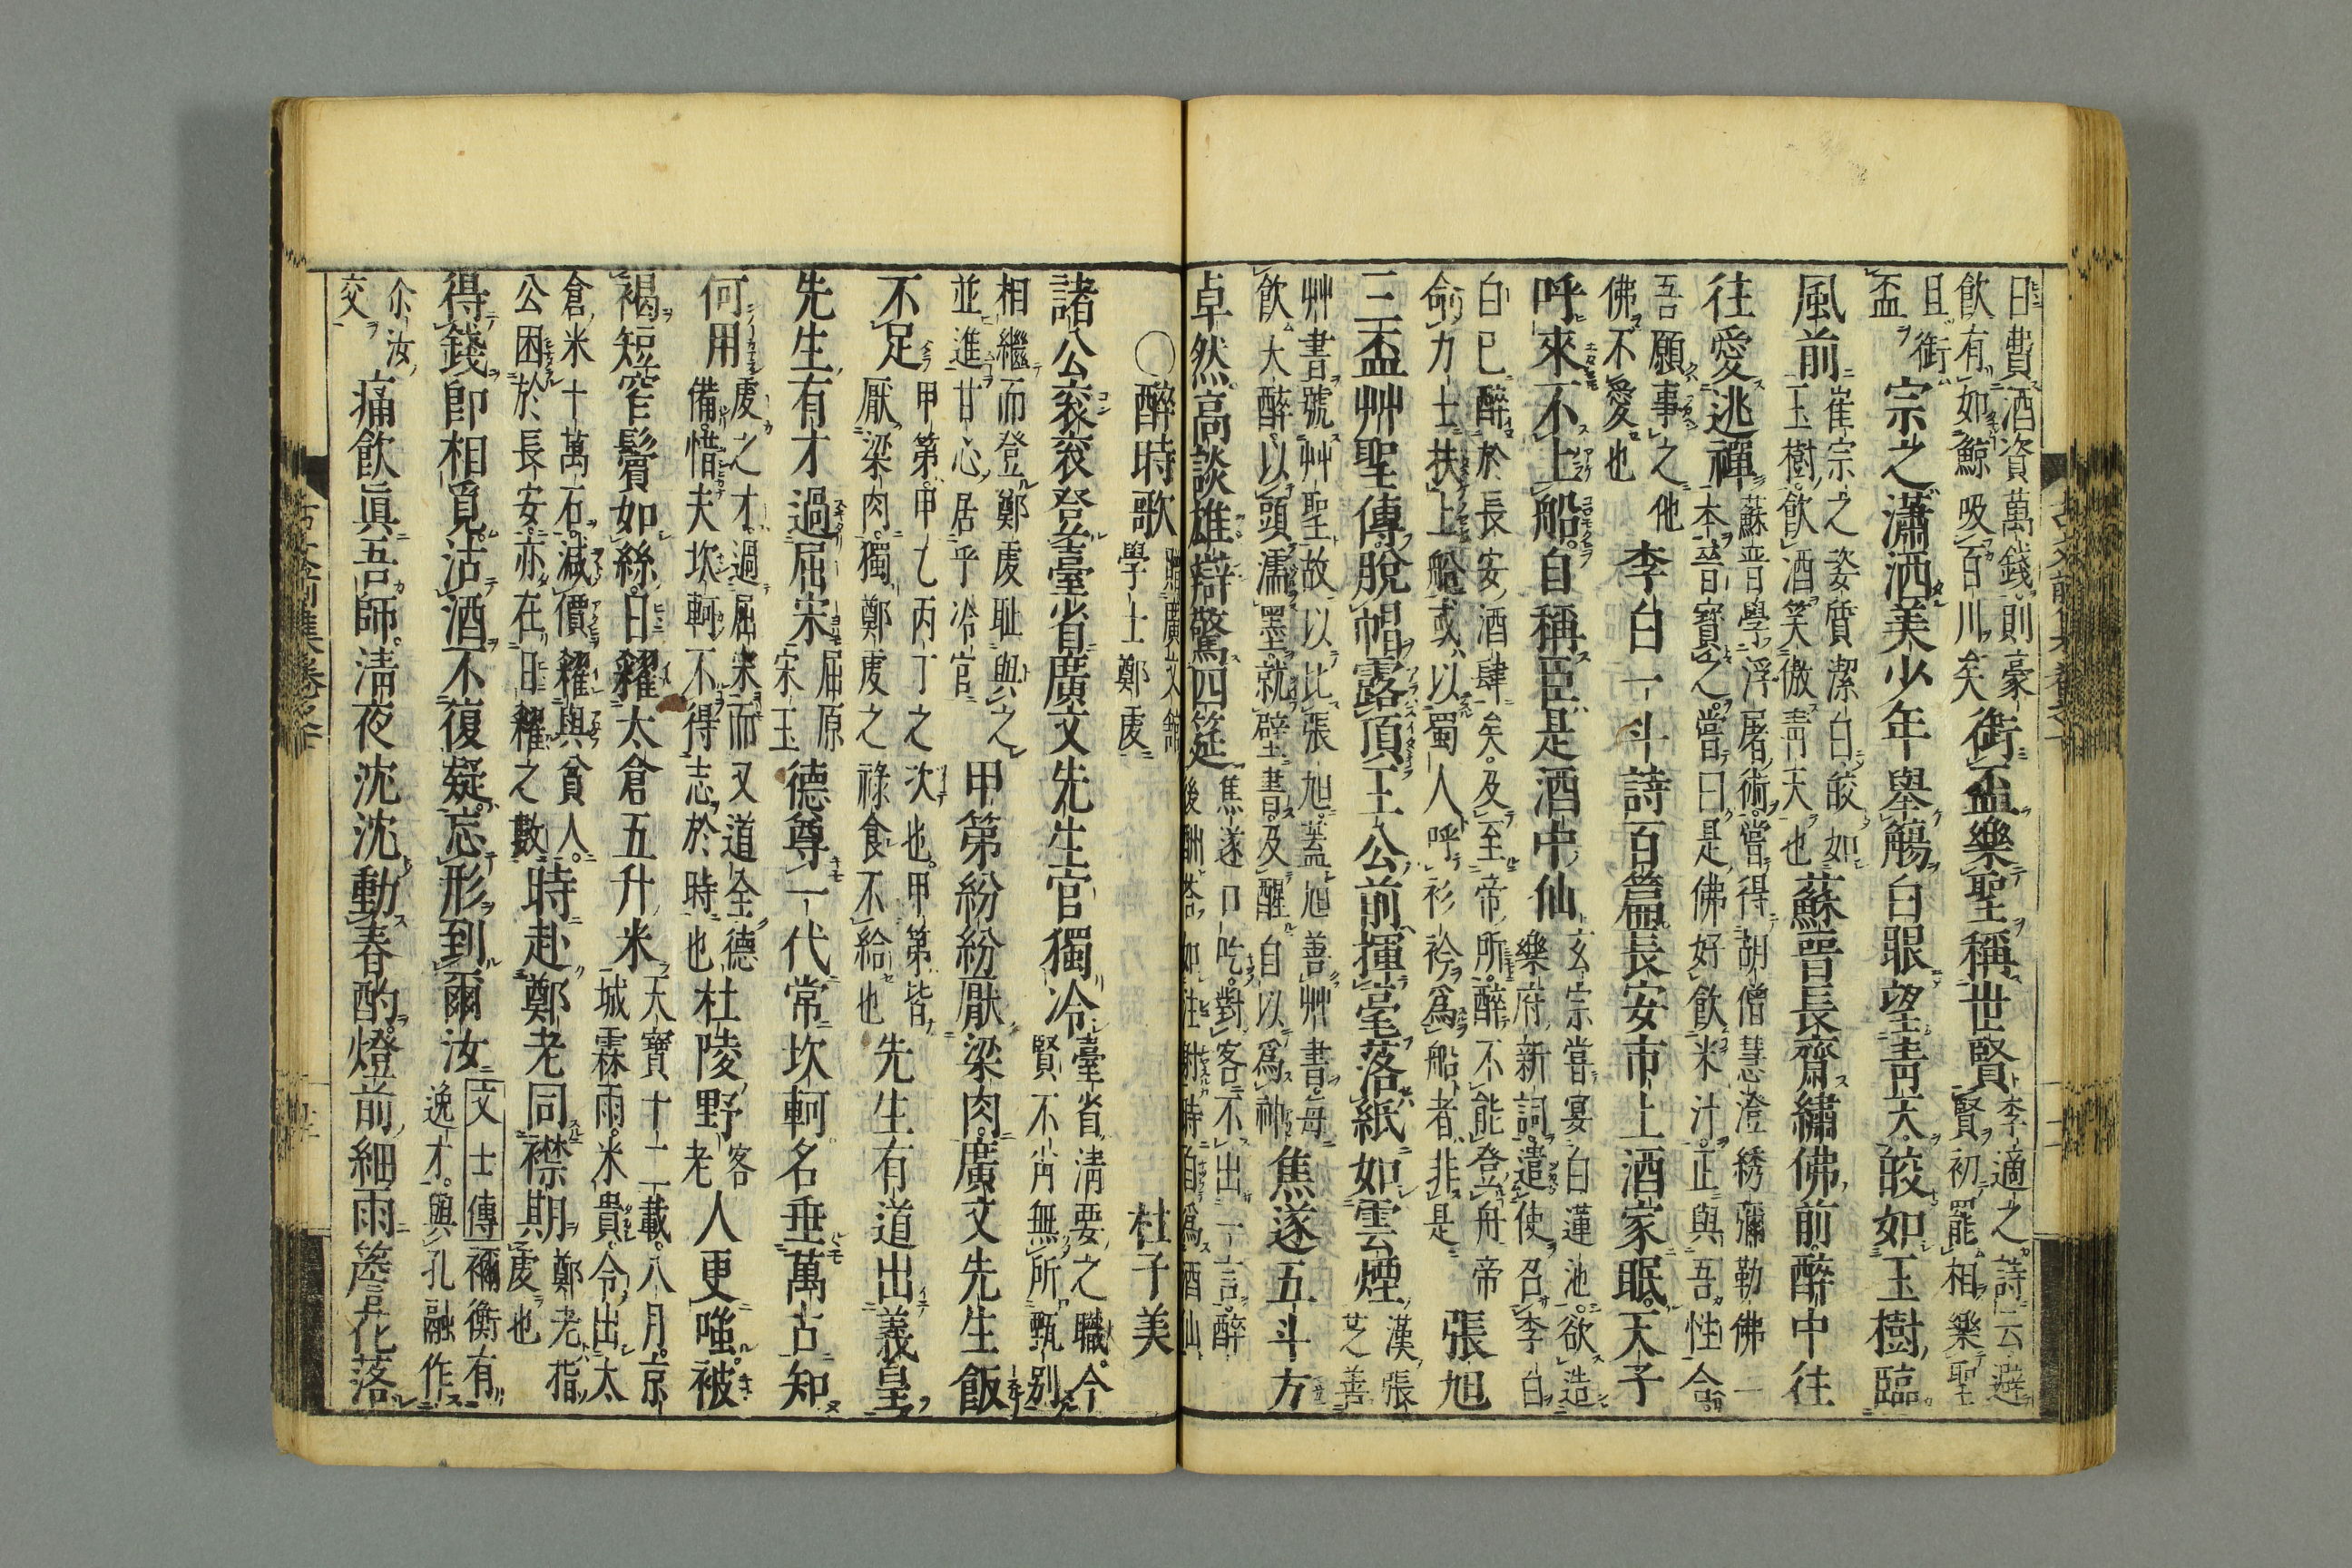 日費酒資萬錢則豪
飲有如鯨吸百川矣
銜盃樂聖稱世賢
李適之詩云避
賢初罷相樂聖
且銜
盃
宗之瀟洒美少年舉觴白眼望靑天皎如玉樹臨
風前
崔宗之姿質潔白皎如
玉樹飮酒笑傲靑天也
蘇晋長齋繡佛前醉中往
往愛逃禪
蘇晋學浮屠術嘗得胡僧慧澄綉彌勒佛一
本晋寶之嘗曰是佛好飮米汁正與吾性合
吾願事之他
佛不愛也
李白一斗詩百篇長安市上酒家眠天子
呼來不上船自稱臣是酒中仙
玄宗嘗宴白蓮池欲造
樂府新詞遣使召李白
白已醉於長安酒肆矣及至帝所醉不能登舟帝
命力士扶上船或以蜀人呼衫衿爲船者非是
張旭
三盃艸聖傳脫帽露頂王公前揮毫落紙如雲煙
漢張
芝善
艸書號艸聖故以比張旭蓋旭善艸書每
飮大醉以頭濡墨就壁書及醒自以爲神
焦遂五斗方
卓然高談雄辯驚四筵
焦遂口吃對客不出一言醉
後酬荅如注射時目爲酒仙
○醉時歌
贈廣文館
學士鄭虔
杜子美
諸公袞袞登臺省廣文先生官獨冷
臺省淸要之職今
賢不肖無所甄別
相繼而登鄭虔耻與之
並進甘心居乎冷官
甲第紛紛厭梁肉廣文先生飯
不足
甲第甲乙丙丁之次也甲第皆
厭梁肉獨鄭虔之祿食不給也
先生有道出義皇
先生有才過屈宋
屈原
宋玉
德尊一代常坎軻名垂萬古知
何用
虔之才過屈宋而又道全德
備惜夫坎軻不得志於時也
杜陵野
客
老
人更嗤被
褐短窄鬢如絲日糴太倉五升米
天寶十二載八月京
城霖雨米貴令出太
倉米十萬石減價糴與貧人
公困於長安亦在日糴之數
時赴鄭老同襟期
鄭老指
虔也
得錢卽相覓沽酒不復疑忘形到爾汝
文士傳禰衡有
逸才與孔融作
尒汝
交
痛飮眞吾師淸夜沈沈動春酌燈前細雨簷花落